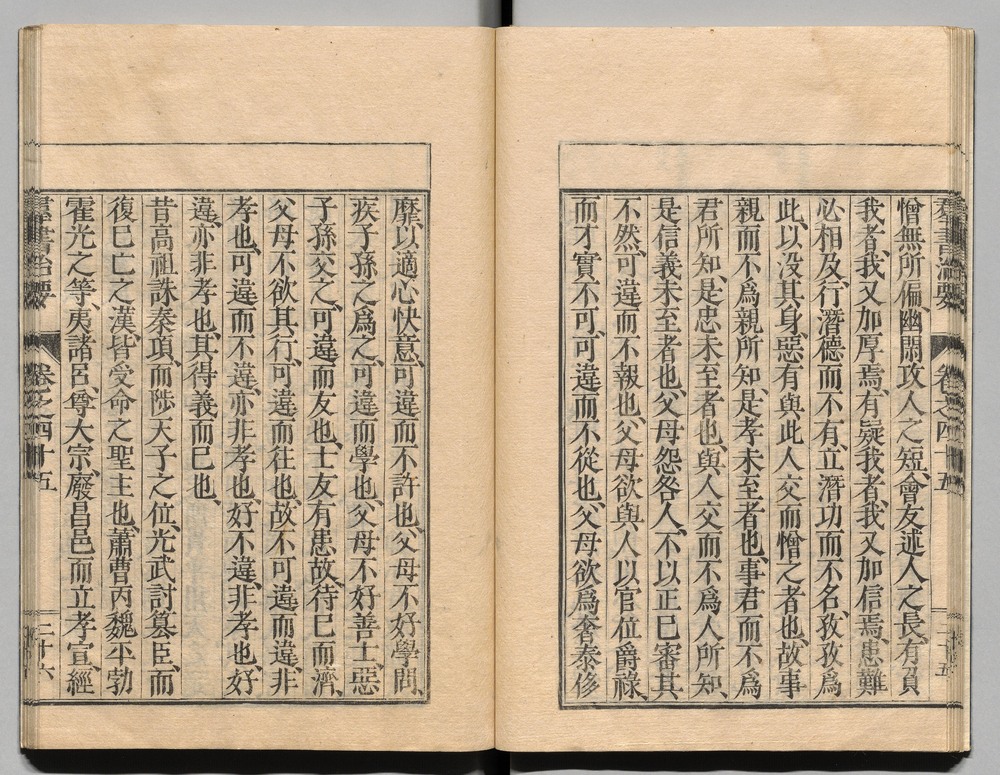 群書治要 卷之四十五 二十五
憎無所偏、幽閑攻人之短、會友述人之長、有負
我者、我又加厚焉、有疑我者、我又加信焉、患難
必相及、行潛德而不有、立潛功而不名、孜孜爲
此、以没其身、惡有與此人交而憎之者也、故事
親而不爲親所知、是孝未至者也、事君而不爲
君所知、是忠未至者也、與人交而不爲人所知、
是信義未至者也、父母怨咎人、不以正已審其
不然、可違而不報也、父母欲與人以官位爵祿、
而才實不可、可違而不從也、父母欲爲奢泰侈
靡、以適心快意、可違而不許也、父母不好學問、
疾子孫之爲之、可違而學也、父母不好善士、惡
子孫交之、可違而友也、士友有患故、待已而濟、
父母不欲其行、可違而往也、故不可違而違、非
孝也、可違而不違、亦非孝也、好不違、非孝也、好
違、亦非孝也、其得義而已也、
昔高祖誅秦項、而陟天子之位、光武討簒臣、而
復已亡之漢、皆受命之聖主也、蕭曹丙魏平勃
霍光之等、夷諸呂、尊大宗、廢昌邑而立孝宣、經
群書治要 卷之四十五 二十六